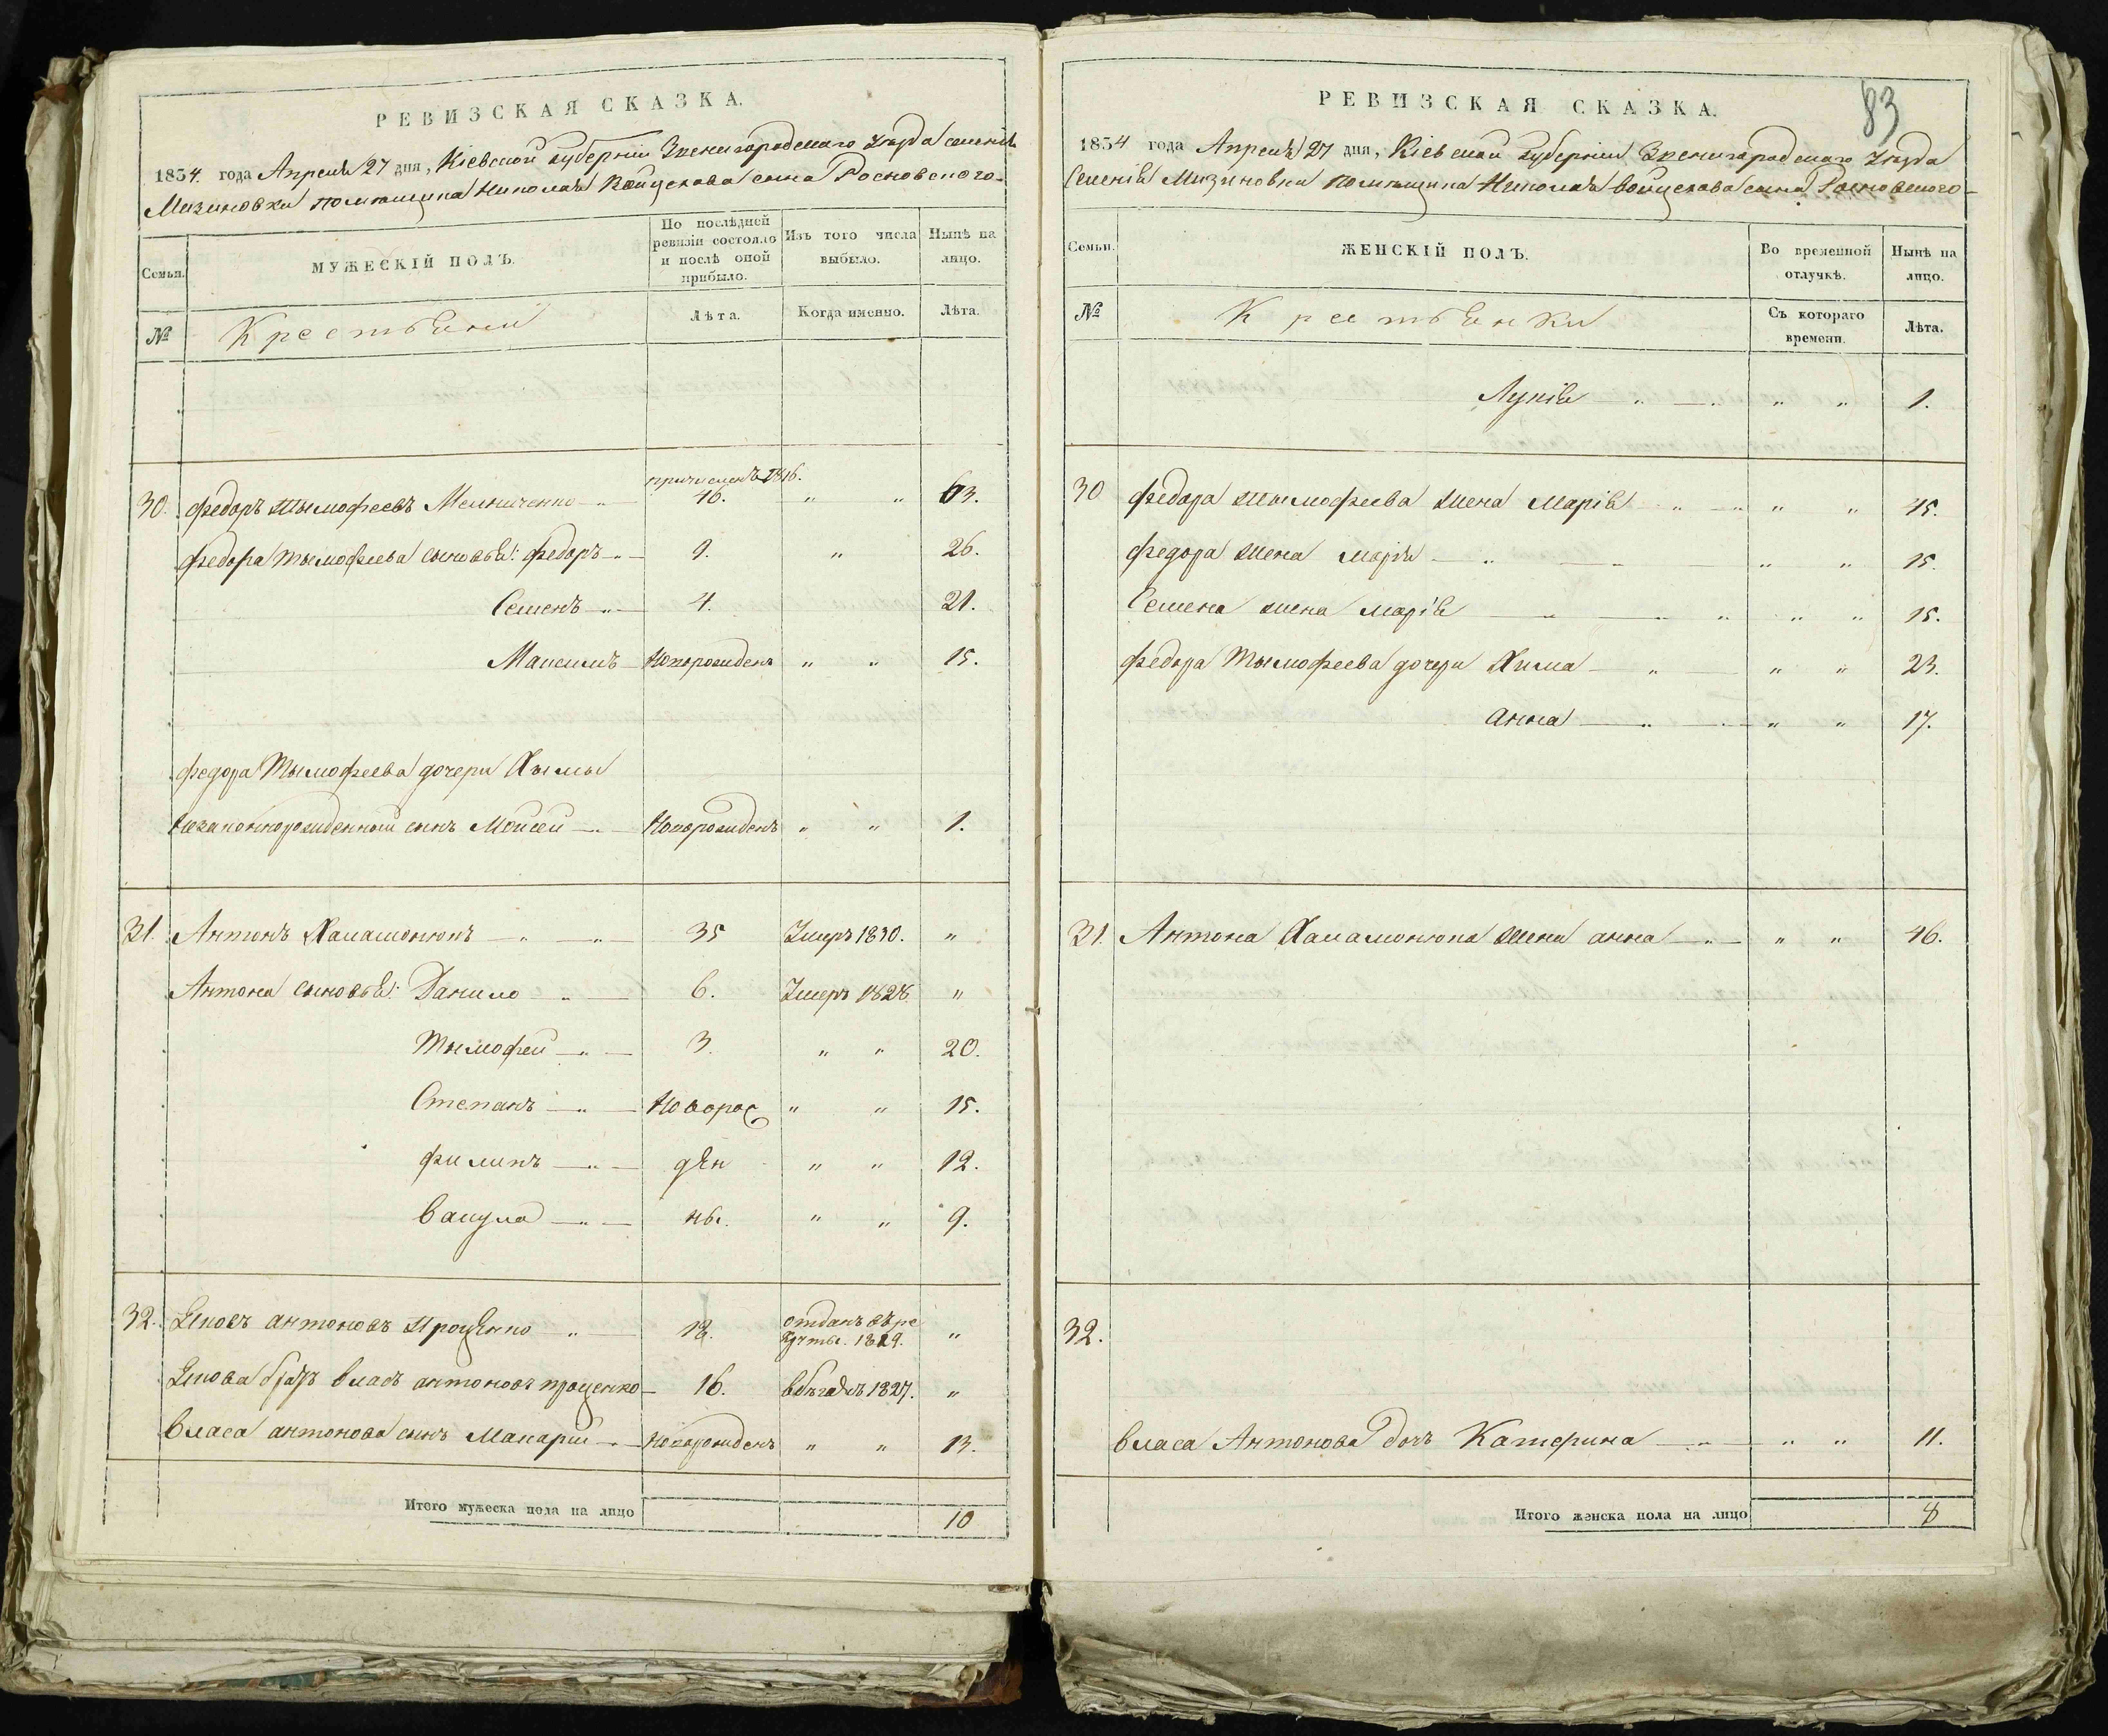 РЕВИЗСКАЯ СКАЗКА.
1834. года Апреля 27 дня, Кіевской губерніи Звенигородскаго уезда селенія
Мизиновки помѣщика Николая Войцехова сына Росновского
Семьи.
МУЖЕСКІЙ ПОЛЪ.
По послѣдней ревизіи состояло и послѣ оной прибыло.
Изъ того числа выбыло.
Нынѣ на лицо.
№
Крестьяни
Лѣта.
Когда именно.
Лѣта.
причисленъ 1816.
30. федоръ тымофеевъ Мельниченко 46. " " 63.
федора тымофеева сыновья: федоръ 9. " 26.
Семенъ 4. 21.
Максимъ Новорожденъ " " 15.
федора тымофеева дочери Хымы
незаконнорожденный сынъ Мойсей Новорожденъ " " 1.
31. Антонъ 35 Умеръ 1830. "
Антона сыновья: Данило 6. Умеръ 1828. "
тымофей 3. " " 20.
Степанъ Новорож " " 15.
филипъ ден " " 12.
вакула ны. " " 9.
32. Яковъ антоновъ проценко 18. отданъ въ ре
круты. 1829. "
Якова братъ власъ антоновъ проценко 16. в бегахъ 1827. "
власа антонова сынъ Макарій Новорожденъ " " 13.
Итого мужеска пола на лицо 10
83
РЕВИЗСКАЯ СКАЗКА.
1834 года Апреля 27 дня, Кіевской губерніи Звенигородскаго уезда
Селенія Мизиновки помѣщика Николая войцехова сына Росновского
Семьи.
ЖЕНСКІЙ ПОЛЪ.
Во временной отлучкѣ.
Нынѣ на лицо.
№
Крестьянки
Съ котораго времени.
Лѣта.
Лукія " " 1.
30 федора тымофеева жена Марія " " 45.
федора жена марія " " 15.
Семена жена марія " " 15.
федора тымофеева дочери Хима " " 23.
анна " " 17.
31. Антона жена анна " " 46.
32.
власа Антонова дочь Катерина " " 11.
Итого женска пола на лицо 8